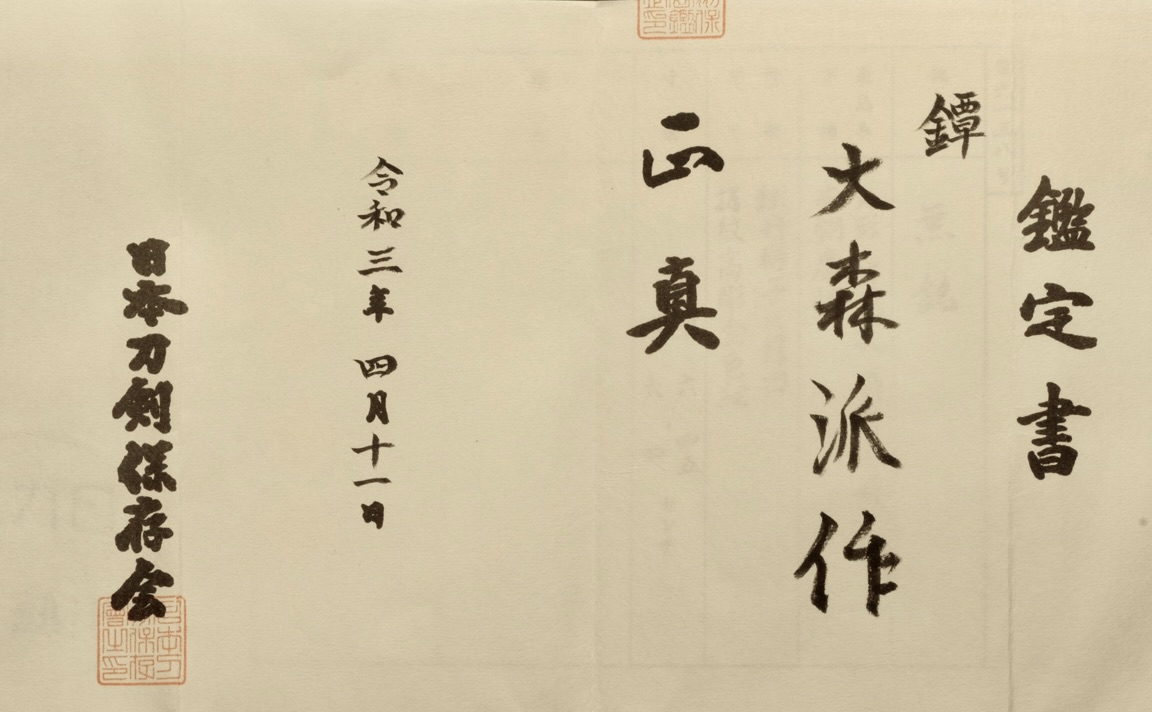 鑑定書
鐔
大森派作
正真
令和三年 四月十一日
日本刀剣保存会